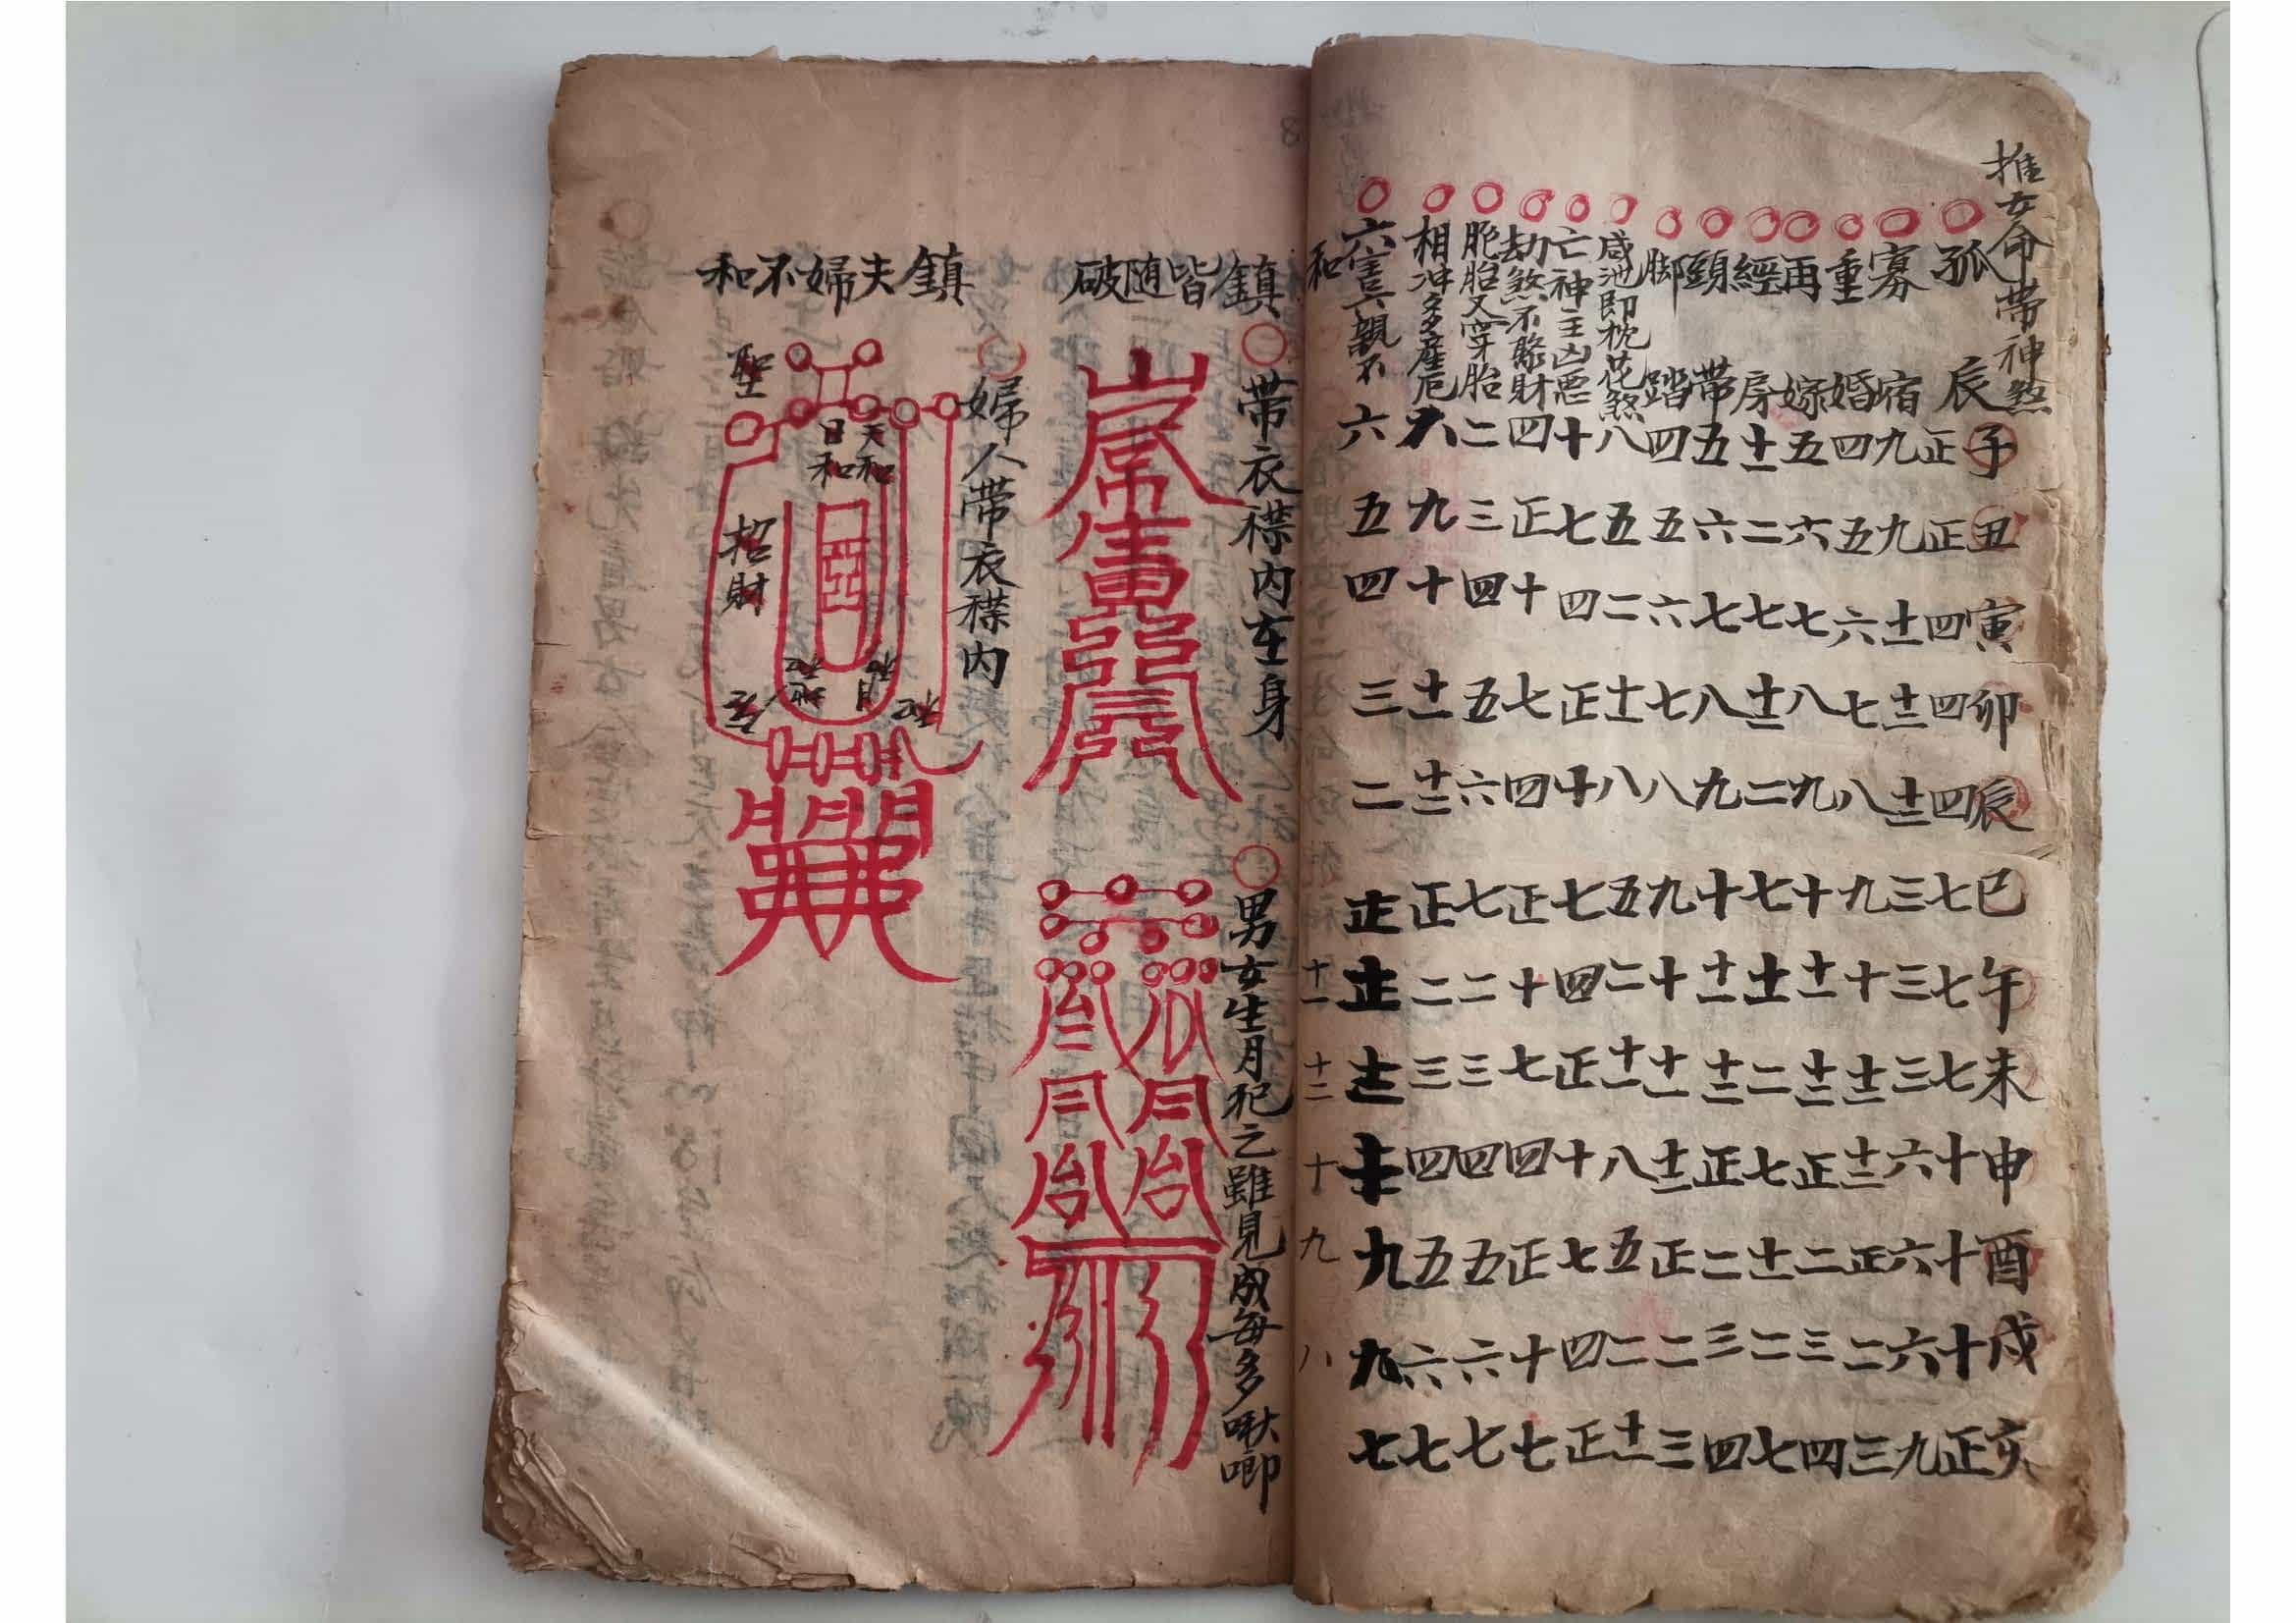 推女命帶神煞
子丑寅卯辰巳午未申酉戌亥
孤辰正正四四四七七七十十十正
寡宿九九十二十二十二三三三六六六九
重婚四五六七八九十十一十二正二三
再嫁五六七八九十十一十二正二三四
經房十一二七十二二七十一二七十一二七
頸帶五六七八九十十一十二正二三四
脚踏四五六七八九十十一十二正二三
咸池即桃花煞八五二十一八五二十一八五二十一
亡神主凶惡十七四正十七四正十七四正
劫煞不聚財四正十七四正十七四正十七
胞胎又穿胎二三四五六七二三四五六七
相冲多產厄八九十十一十二正二三四五六七
六害六親不和六五四三二正
九九七
十一十二十九八
鎮皆随破
帶衣襟内在身
男女生月犯之雖見成每多啾唧
鎮夫婦不和
婦人帶衣襟内
天和
日和
聖
招財